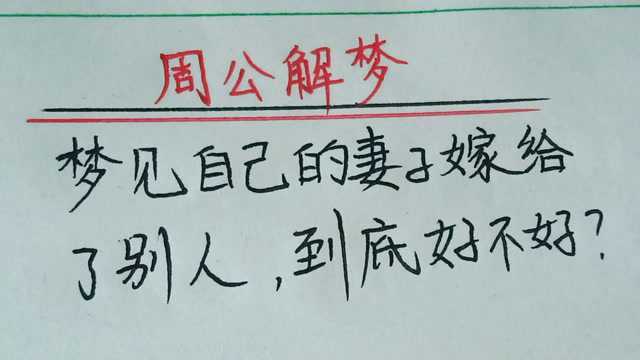 周公解梦
梦见自己的妻子嫁给
了别人,到底好不好?